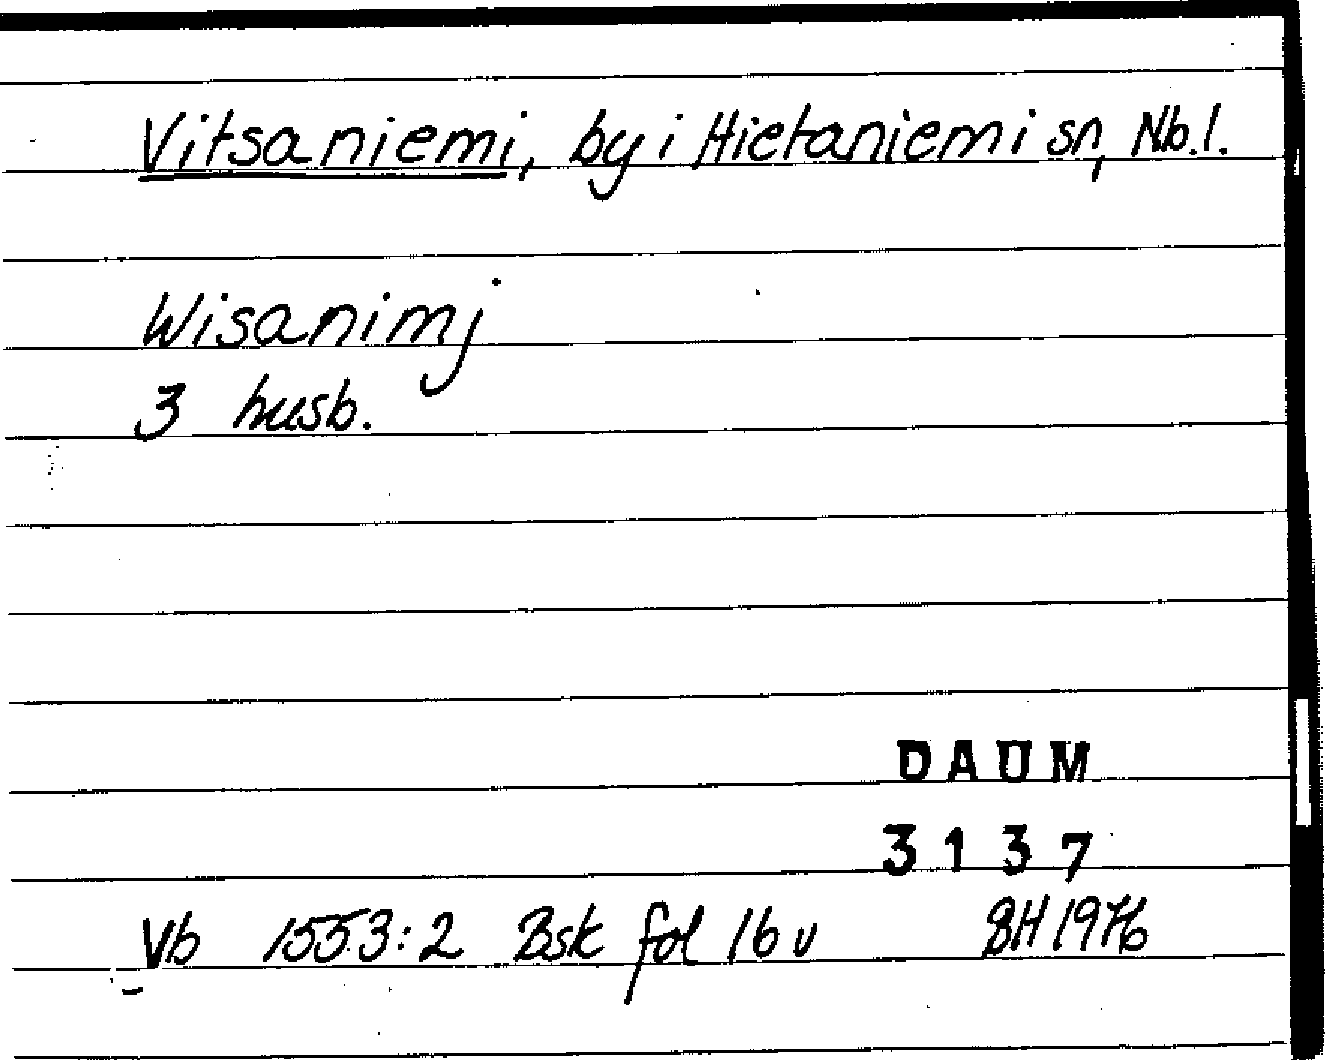 Vitsaniemi, by i Hietaniemi sn, Nb.l.
Wisanimj
3 husb.
DAUM
3137
Vb 1553:2 Bsk fol 16 v GH 1976